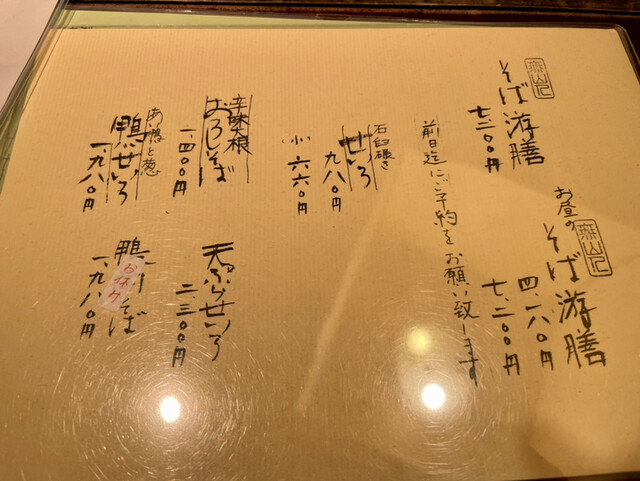 そば游膳
七、二〇〇円
お昼の
そば游膳
四、一八〇円
七、二〇〇円
前日迄にご予約をお願い致します
石臼碾き
せいろ
九八〇円
小 六六〇円
辛味大根
おろしそば
一、四〇〇円
天ぷらせいろ
二、三〇〇円
あい鴨と葱
鴨せいろ
一、九八〇円
鴨 そば
一、九八〇円